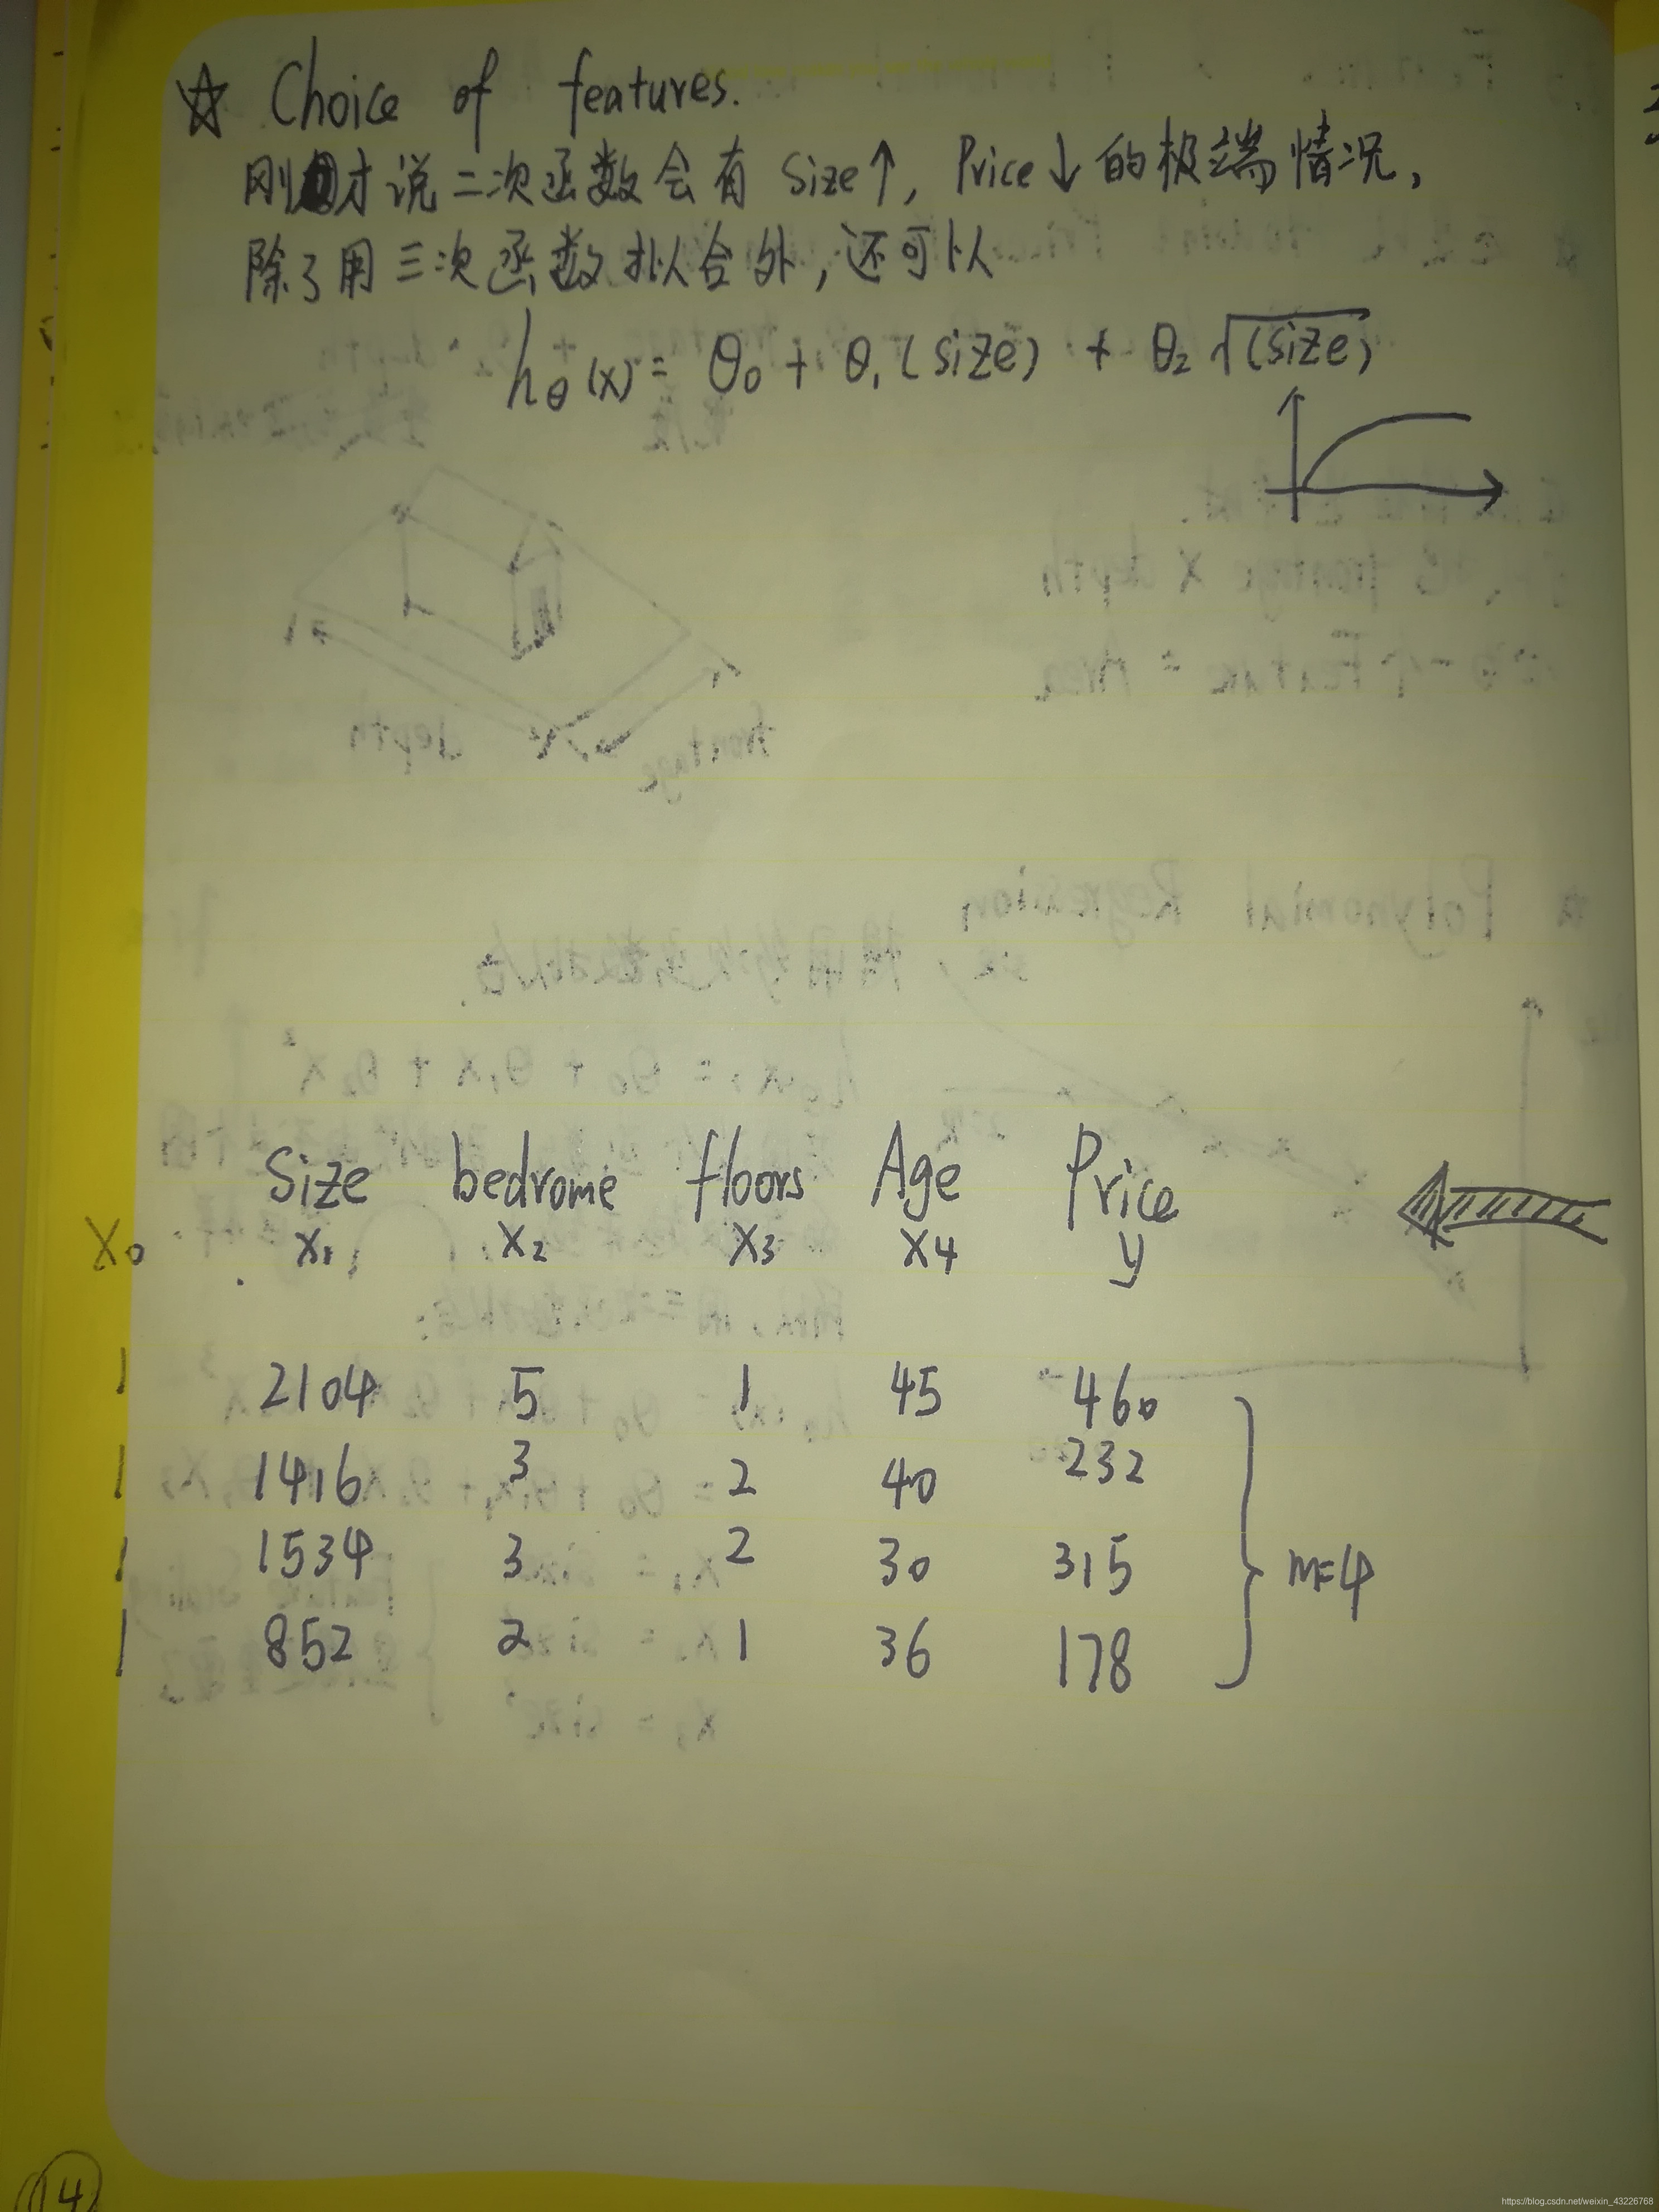 ☆ Choice of features.
刚才说二次函数会有 Size↑, Price↓的极端情况,
除了用三次函数拟合外,还可以
hθ(x) = θ0 + θ1(size) + θ2√(size)
Size bedrome floors Age Price
X0 X1 X2 X3 X4 y
1 2104 5 1 45 460
1 1416 3 2 40 232
1 1534 3 2 30 315
1 852 2 1 36 178
m=4
14
https://blog.csdn.net/weixin_43226768